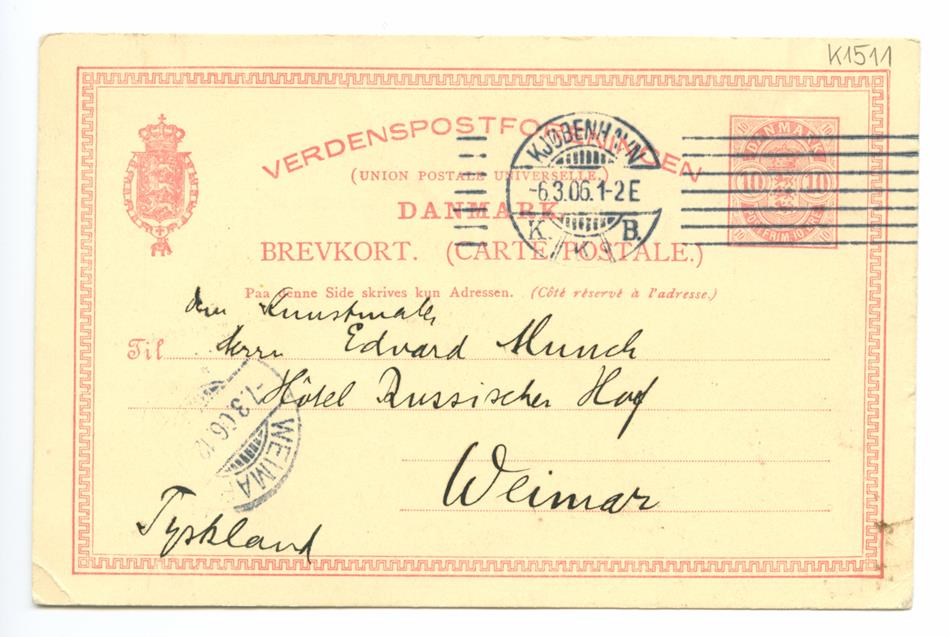 K1511
VERDENSPOSTFORENINGEN
(UNION POSTALE UNIVERSELLE.)
DANMARK
BREVKORT. (CARTE POSTALE.)
Paa denne Side skrives kun Adressen. (Côté réservé à l'adresse.)
KJØBENHAVN
-6.3.06.1-2 E
K. B.
K
DANMARK
10 10
10 10
10 10
Kunstmaler
Til Herrn Edvard Munch
Hôtel Russischer Hof
Weimar
Tyskland
WEIMAR
-7.3.06.12